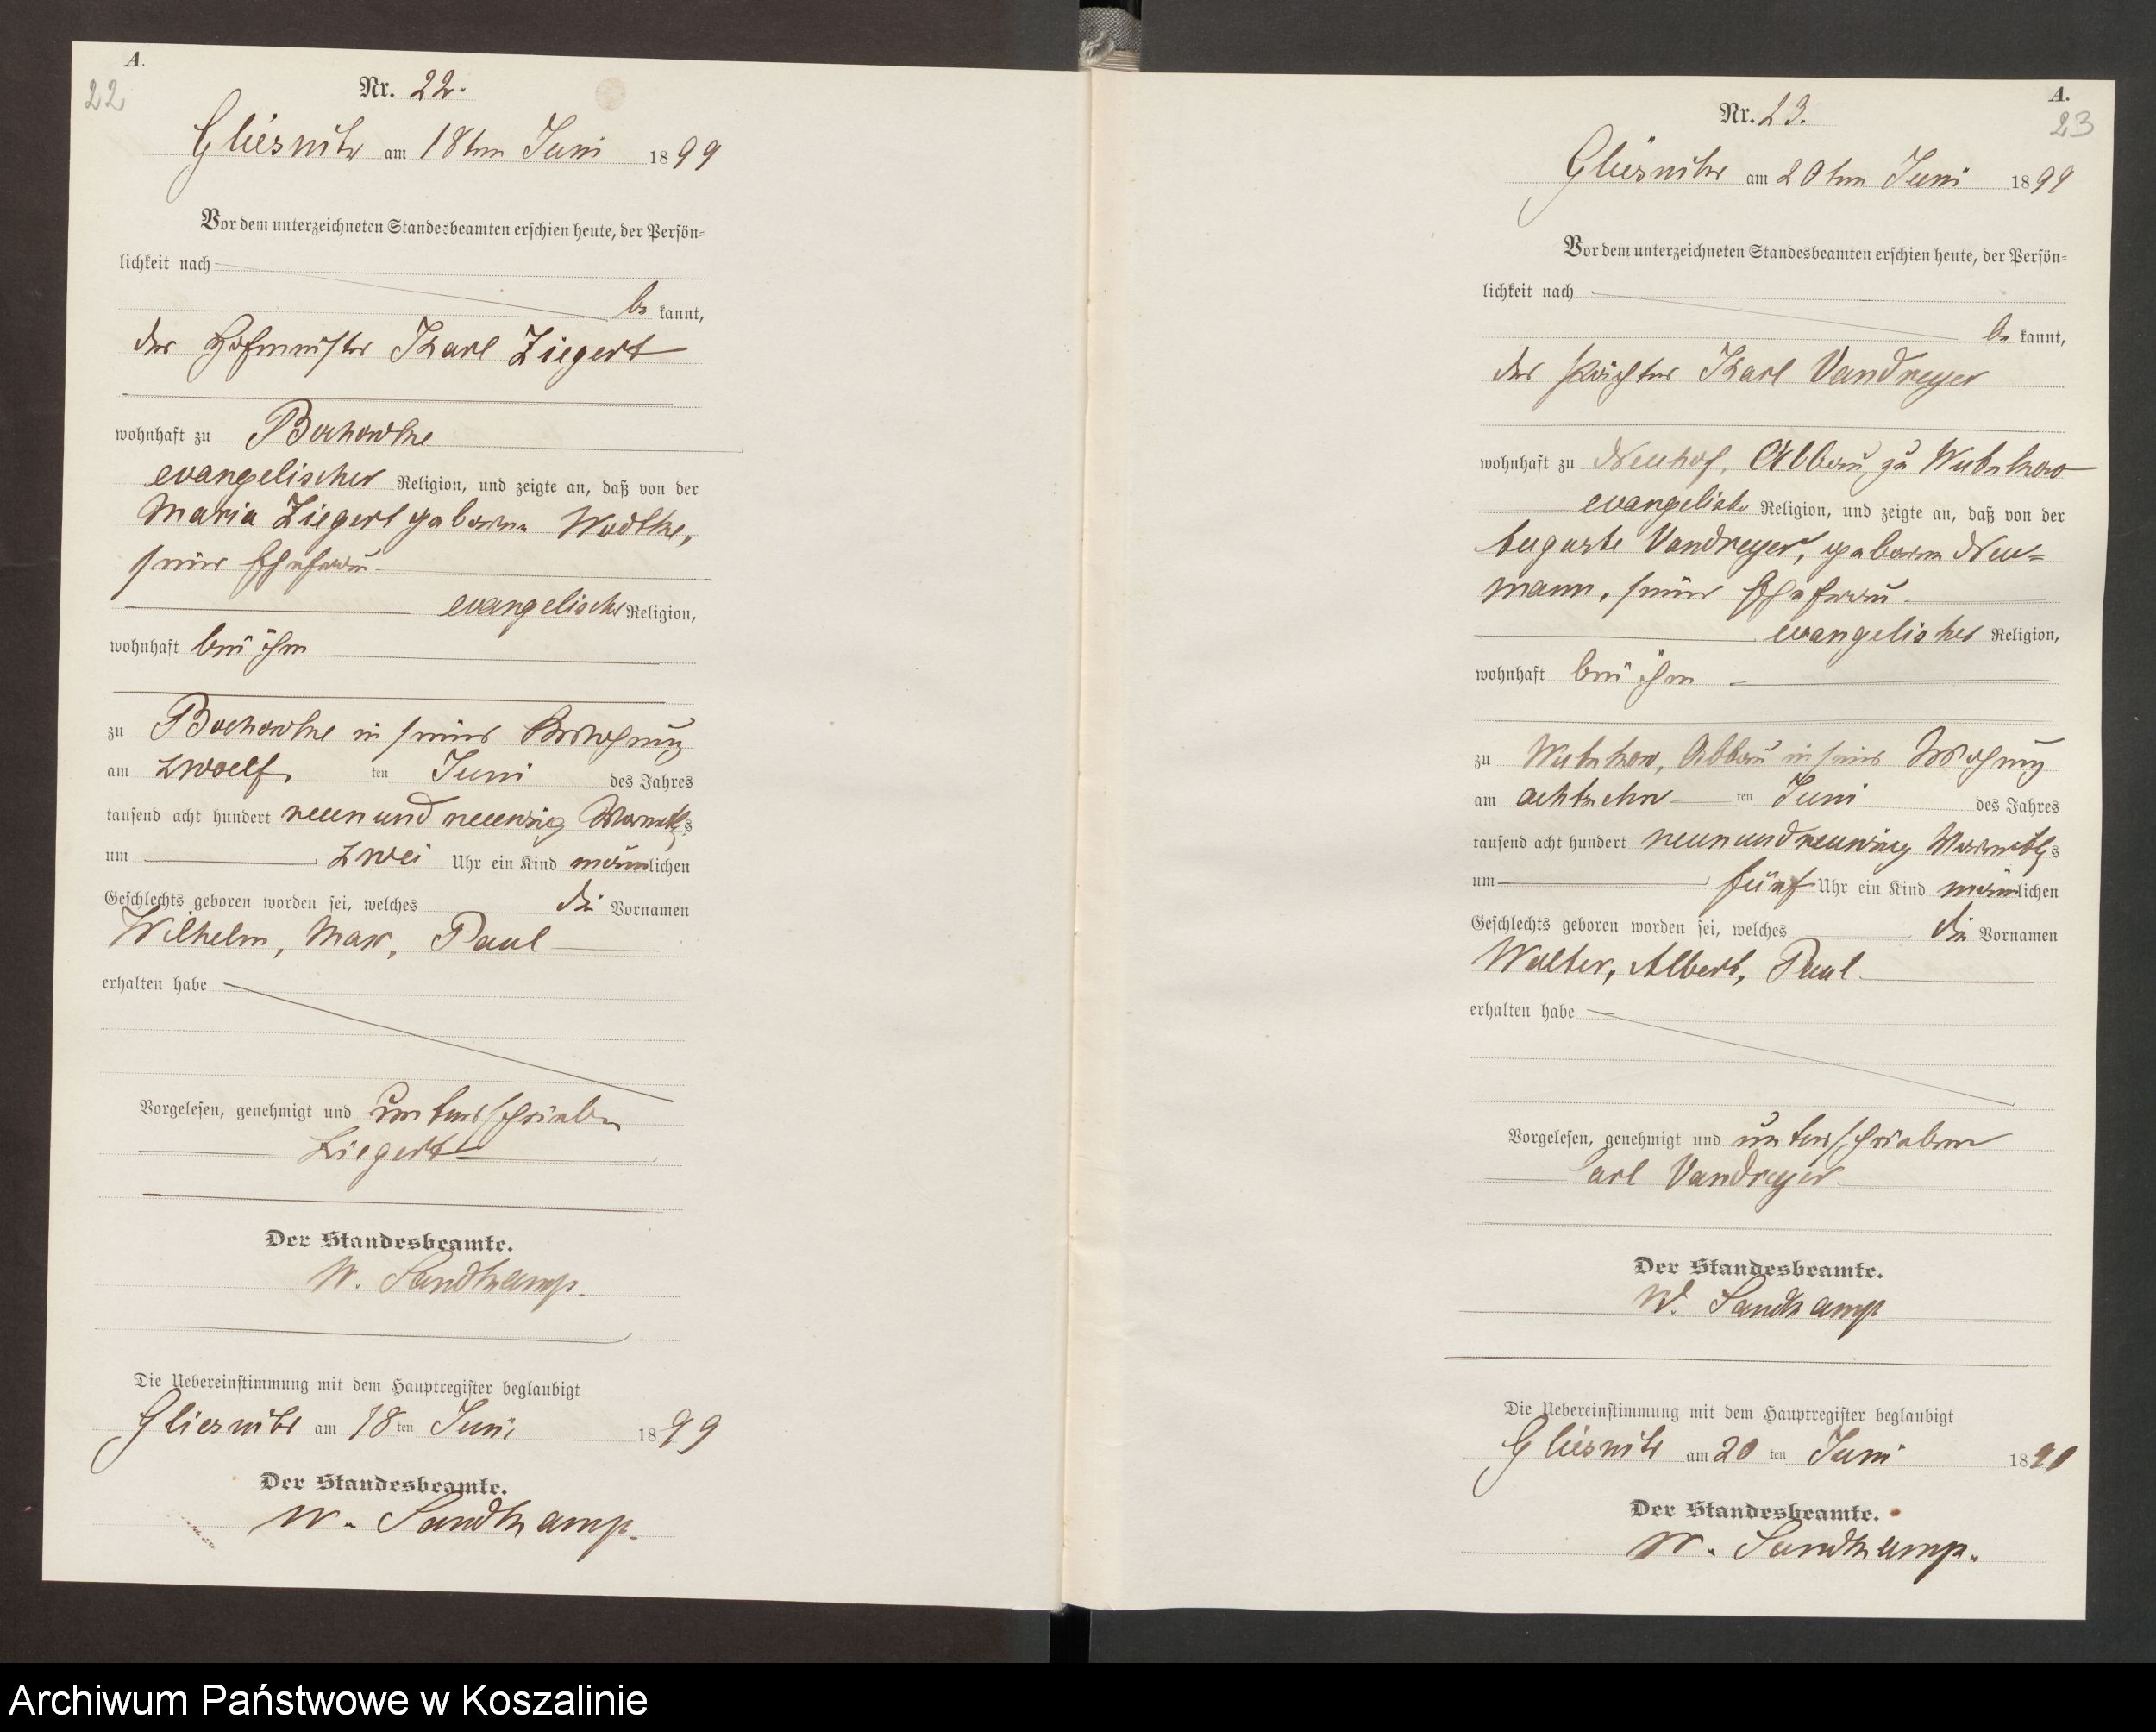 A.
22
Nr. 22.
Gliesnitz am 18ten Juni 1899
Vor dem unterzeichneten Standesbeamten erschien heute, der Persön=
lichkeit nach
be kannt,
der Hofmeister Karl Ziegert
wohnhaft zu Bochowke
evangelischer Religion, und zeigte an, daß von der
Maria Ziegert geborenen Wodtke,
seiner Ehefrau
evangelischer Religion,
wohnhaft bei ihm
zu Bochowke in seiner Wohnung
am zwoelf ten Juni des Jahres
tausend acht hundert neunundneunzig Vormittags
um zwei Uhr ein Kind männlichen
Geschlechts geboren worden sei, welches die Vornamen
Wilhelm, Max, Paul
erhalten habe
Vorgelesen, genehmigt und unterschrieben
Ziegert
Der Standesbeamte.
W. Sandkamp.
Die Uebereinstimmung mit dem Hauptregister beglaubigt
Gliesnitz am 18ten Juni 1899
Der Standesbeamte.
W. Sandkamp.
A.
23
Nr. 23.
Gliesnitz am 20ten Juni 1899
Vor dem unterzeichneten Standesbeamten erschien heute, der Persön=
lichkeit nach
be kannt,
der Pächter Karl Vandreyer
wohnhaft zu Neuhof, Abbau zu Wutzkow
evangelischer Religion, und zeigte an, daß von der
Auguste Vandreyer, geborenen Neu=
mann, seiner Ehefrau
evangelischer Religion,
wohnhaft bei ihm
zu Wutzkow, Abbau in seiner Wohnung
am achtzehn ten Juni des Jahres
tausend acht hundert neunundneunzig Vormittags
um fünf Uhr ein Kind männlichen
Geschlechts geboren worden sei, welches die Vornamen
Walter, Albert, Paul
erhalten habe
Vorgelesen, genehmigt und unterschrieben
Carl Vandreyer.
Der Standesbeamte.
W. Sandkamp
Die Uebereinstimmung mit dem Hauptregister beglaubigt
Gliesnitz am 20 ten Juni 18
Der Standesbeamte.
W. Sandkamp.
Archiwum Państwowe w Koszalinie